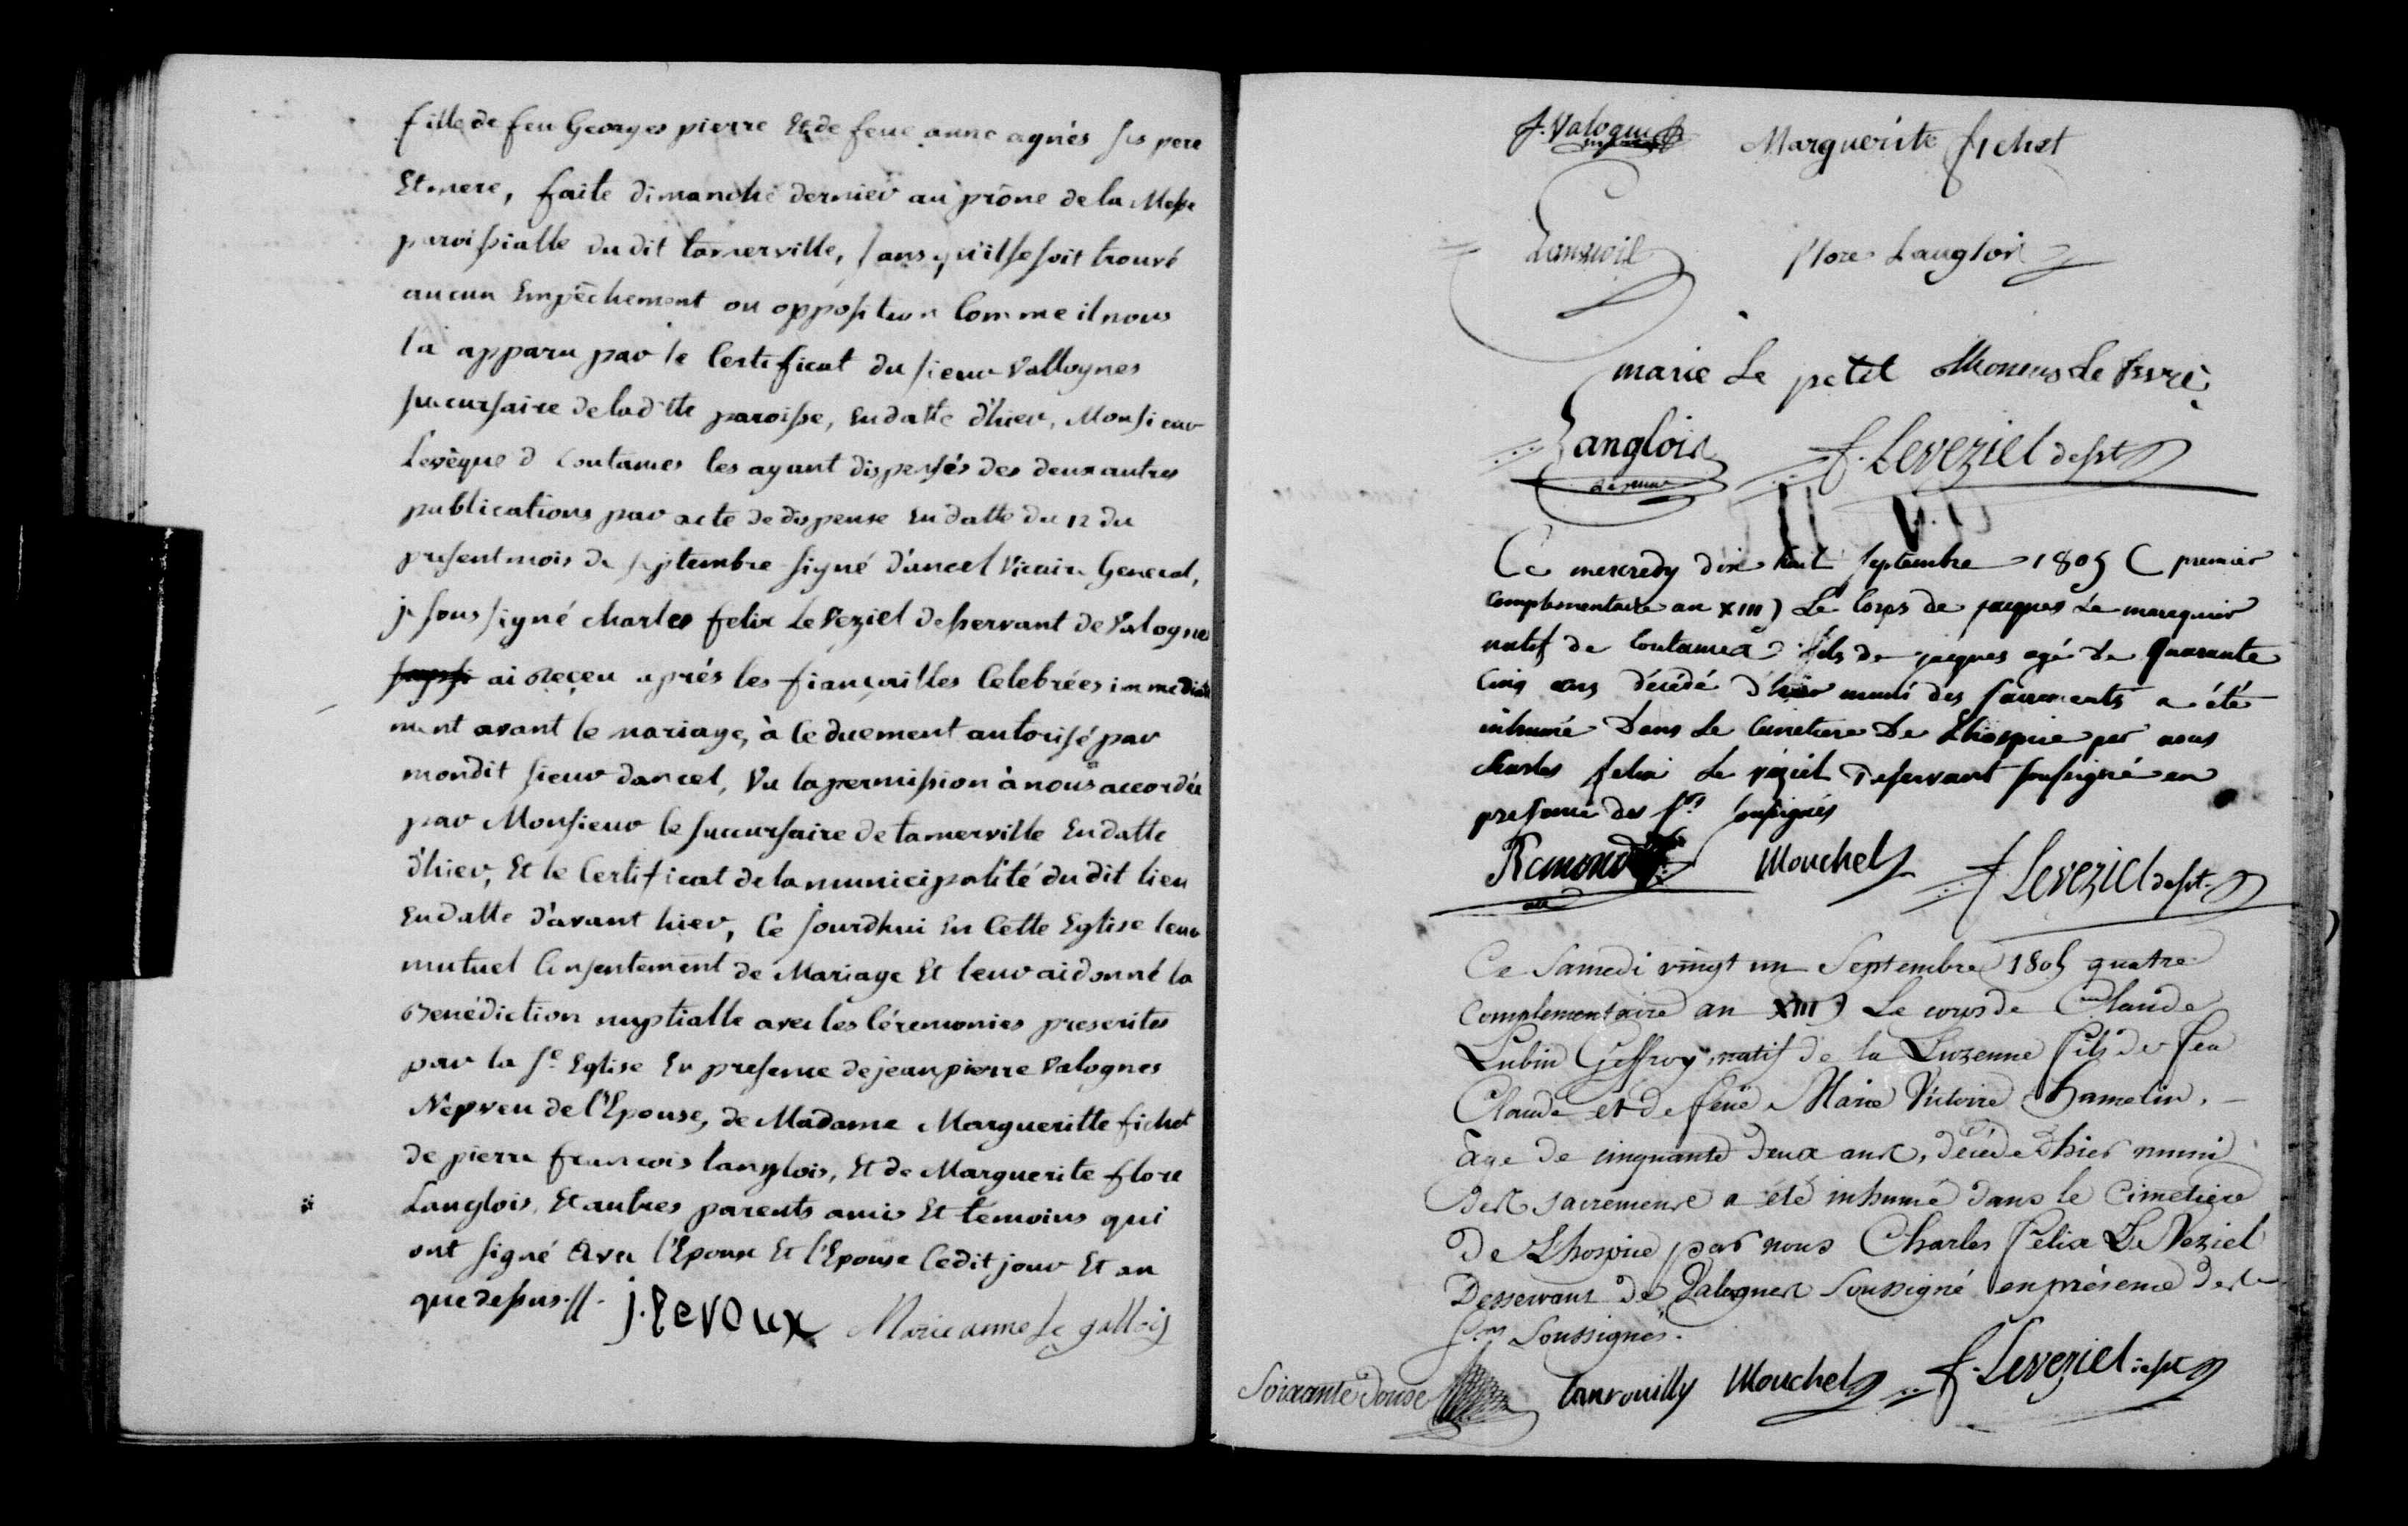 fille de feu Georges pierre Et de feue anne agnés ses pere
Et mere, faite dimanche dernier au prône de la Messe
paroissialle du dit tamerville, sans qu'il se soit trouvé
aucun Empêchement ou opposition Comme il nous
l'a apparu par le Certificat du sieur Vallognes
sucursaire de laditte paroisse, en datte d'hier, Monsieur
Levêque d Coutances les ayant dispensés des deux autres
publications par acte de dispense en datte du 12 du
present mois de septembre signé d'ancel Vicaire General,
je soussigné charles felix Le Veziel desservant de Valognes
ai Reçeu aprés les fiançailles Celebrées immediate
ment avant le mariage, à ce duement autorisé par
mondit sieur dancel, Vu la permission à nous accordée
par Monsieur le succursaire de tamerville En datte
d'hier, Et le Certificat de la municipalité du dit lieu
En datte d'avant hier, Ce jourdhui En Cette Eglise leur
mutuel Consentement de Mariage Et leur ai donné la
Benédiction nuptialle avec les Céremonies prescrites
par la Ste Eglise En presence de jean pierre Valognes
Nepveu de l'Epouse, de Madame Margueritte fichet
de pierre francois langlois, Et de Marguerite flore
Langlois, Et autres parents amis Et temoins qui
ont signé Avec l'Epoux Et l'Epouse Cedit jour Et an
que dessus.//. j. Levoux Marie anne Le gallois
J. Valognes Marguerite fichet
flore Langlois
marie Le petit
Langlois f. Leveziel desst
Ce mercredy dix huit septembre 1805 (premier
complementaire an XIII) Le Corps de jacques Le marquier
natif de Coutances fils de jacques agé de quarante
Cinq ans décédé d'hier muni des sacrements a été
inhumé dans Le Cimetiere de Lhospice par nous
charles felix Le veziel desservant soussigné en
presence des srs soussignés
Remond Mouchel f. Leveziel desst
Ce Samedi vingt un Septembre 1805 quatre
complementaire an XIII) Le corps de Claude
Lubin Geffroy natif de la Luzenne fils de feu
Claude et de feue Marie Victoire hamelin,
âge de cinquante deux ans, décédé d'hier muni
des sacrements a été inhumé dans le Cimetiere
de Lhospice par nous Charles félix Le Veziel
Desservant de Valognes Soussigné en présence des
srs Soussignés.
Soixante Douze Tanrouilly Mouchel f. Leveziel desst